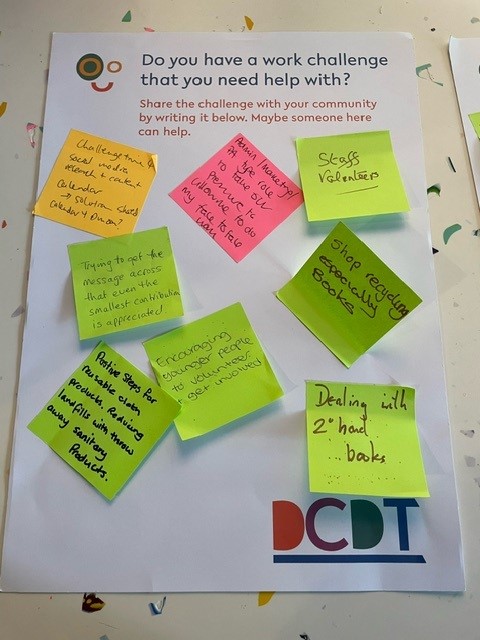 Do you have a work challenge
that you need help with?
Share the challenge with your community
by writing it below. Maybe someone here
can help.
social media
research + content
Calendar
→ solution shared
Calendar
type role
to take our
pressure is
me to do
my
role
Staff
Volunteers
Trying to get the
message across
that even the
smallest contribution
is appreciated.
Shop recycling
especially
Books
Encouraging
younger people
to volunteer
get involved
Positive Steps for
reusable cloth
products. Reducing
landfills with throw
away sanitary
Products.
Dealing with
2nd hand
... books
DCDT